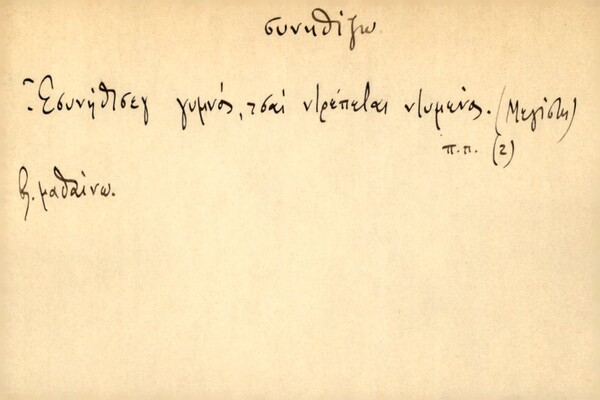 συνηθίζω
Ἐσυνήθισεγ γυμνός, τσαί ντρέπεται ντυμένος. (Μεγίστη)
π.π. (2)
βλ. μαθαίνω.